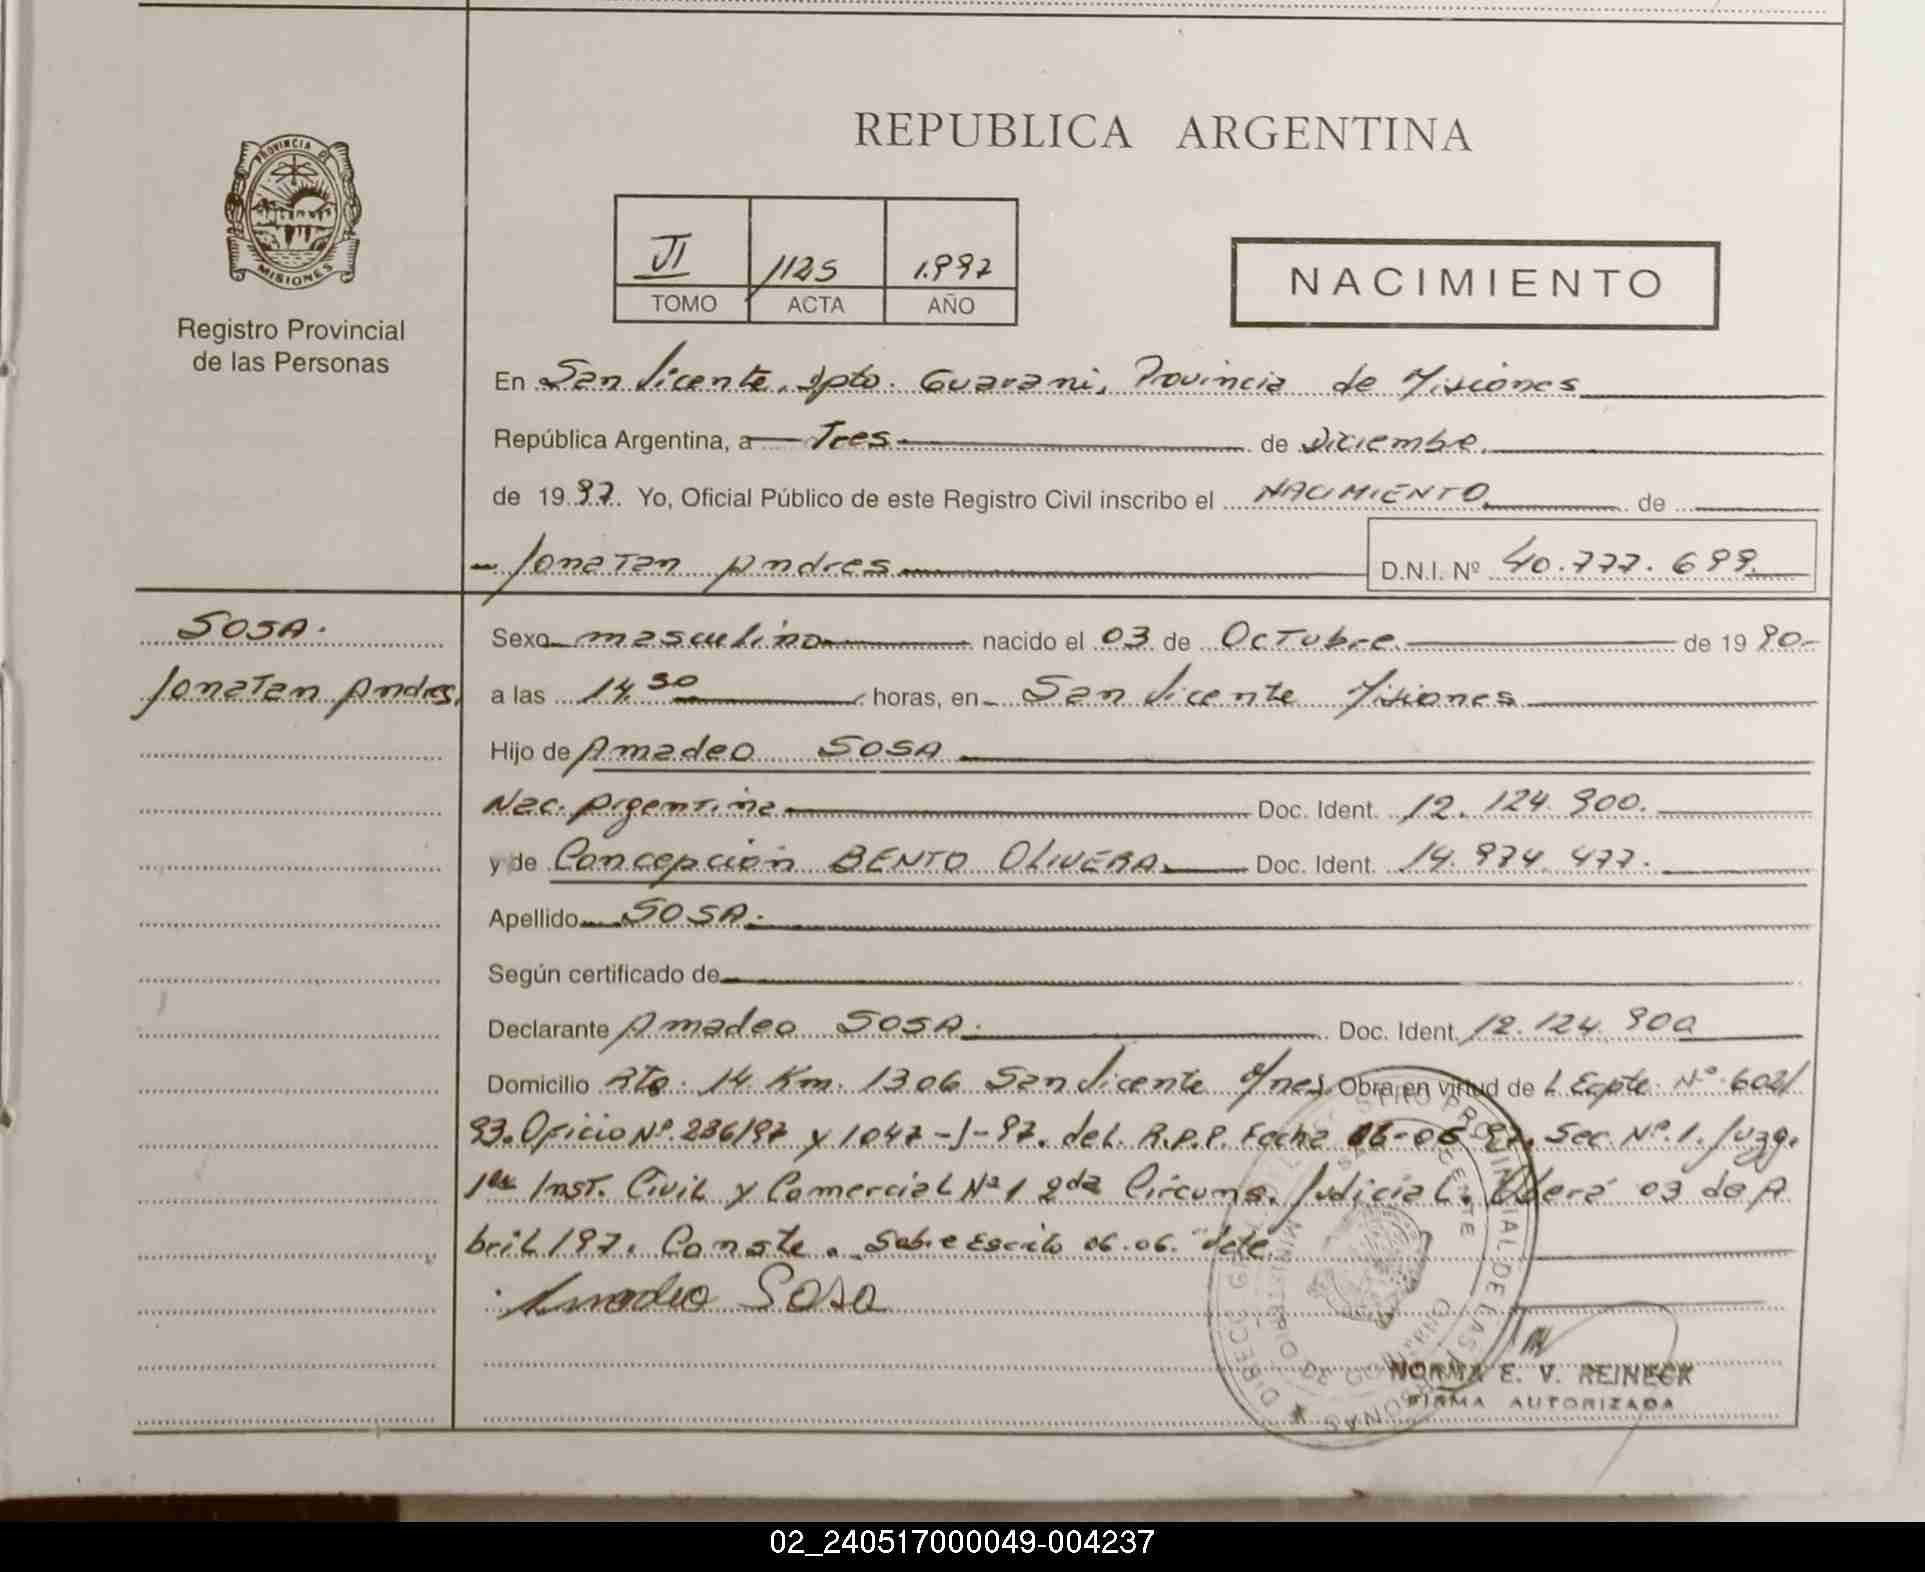 REPUBLICA ARGENTINA
PROVINCIA DE
MISIONES
Registro Provincial
de las Personas
VI 1125 1.997
TOMO ACTA AÑO
NACIMIENTO
En San Vicente, Dpto. Guaraní, Provincia de Misiones
República Argentina, a Tres de Diciembre.
de 1997. Yo, Oficial Público de este Registro Civil inscribo el NACIMIENTO de
Jonatan Andres D.N.I. Nº 40.777.699.
SOSA.
Jonatan Andres.
Sexo masculino nacido el 03 de Octubre de 1990-
a las 14.30 horas, en San Vicente Misiones
Hijo de Amadeo SOSA
Nac. Argentina Doc. Ident. 12.124.900.
y de Concepción BENTO OLIVERA. Doc. Ident. 14.974.477.
Apellido SOSA.
Según certificado de
Declarante Amadeo SOSA. Doc. Ident. 12.124.900
Domicilio Rta. 14 Km. 1306 San Vicente Mnes. Obra en virtud de L Ecpte. Nº. 602/
93. Oficio Nº. 286/97 y 1047-J-97. del. R.P.P. Fecha 06-06-97. Sec. Nº. 1. Juzg.
1era Inst. Civil y Comercial Nº 1 2da Circuns. Judicial. Oberá 03 de A
bril 197. Conste. Sobre Escrito 06.06. Vete.
Amadeo Sosa
NORMA E. V. REINECK
FIRMA AUTORIZADA
02_240517000049-004237